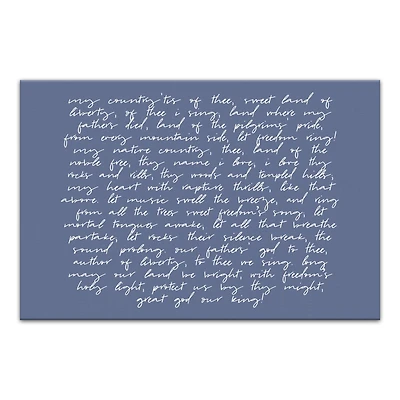 my country 'tis of thee, sweet land of
liberty, of thee i sing, land where my
fathers died, land of the pilgrims' pride,
from every mountain side, let freedom ring!
my native country, thee, land of the
noble free, thy name i love, i love thy
rocks and rills, thy woods and templed hills,
my heart with rapture thrills, like that
above. let music swell the breeze, and ring
from all the trees sweet freedom's song, let
mortal tongues awake, let all that breathe
partake, let rocks their silence break, the
sound prolong. our fathers' god to thee,
author of liberty, to thee we sing. long
may our land be bright, with freedom's
holy light, protect us by thy might,
great god our king!